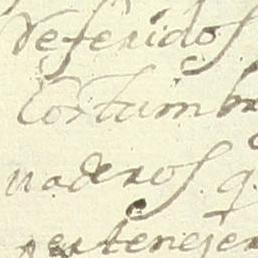 Referidos
Costumbr
naderos q
pertenejen